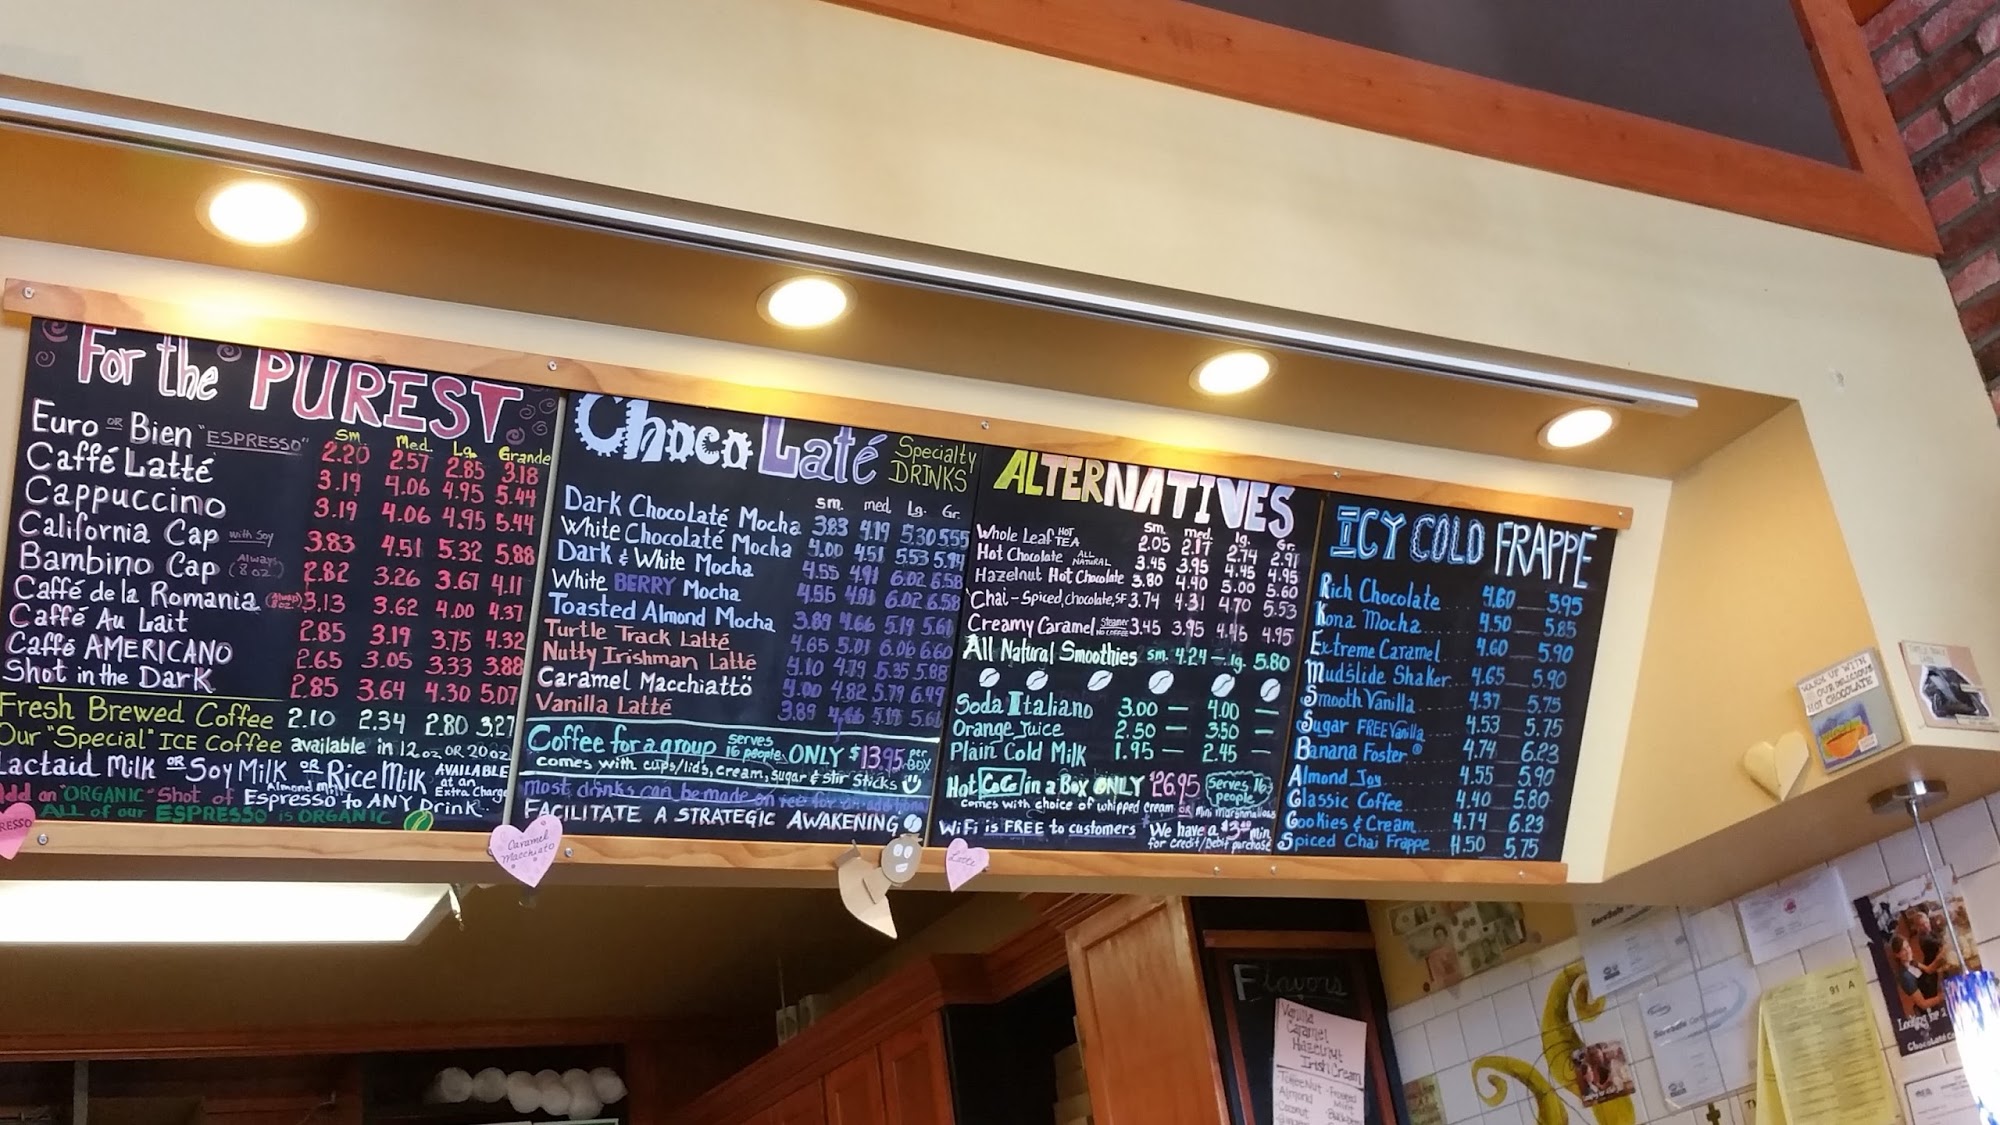 For the PUREST
sm. Med. Lg. Grande
Euro OR Bien "ESPRESSO" 2.20 2.57 2.85 3.18
Caffé Latté 3.19 4.06 4.95 5.44
Cappuccino 3.19 4.06 4.95 5.44
California Cap with Soy 3.83 4.51 5.32 5.88
Bambino Cap (Always 8oz) 2.82 3.26 3.67 4.11
Caffé de la Romania (Always 8oz) 3.13 3.62 4.00 4.37
Caffé Au Lait 2.85 3.19 3.75 4.32
Caffé AMERICANO 2.65 3.05 3.33 3.88
Shot in the Dark 2.85 3.64 4.30 5.07
Fresh Brewed Coffee 2.10 2.34 2.80 3.27
Our "Special" ICE Coffee available in 12oz OR 20oz
Lactaid Milk OR Soy Milk OR Rice Milk AVAILABLE at an Extra Charge
Almond Milk
Add an "ORGANIC" Shot of Espresso to ANY Drink
ALL of our ESPRESSO is ORGANIC
ChocoLaté Specialty DRINKS
sm. med. Lg. Gr.
Dark ChocoLaté Mocha 3.83 4.19 5.30 5.55
White Chocolaté Mocha 4.00 4.51 5.53 5.94
Dark & White Mocha 4.55 4.91 6.02 6.58
White BERRY Mocha 4.55 4.91 6.02 6.58
Toasted Almond Mocha 3.89 4.66 5.19 5.61
Turtle Track Latté 4.65 5.01 6.06 6.60
Nutty Irishman Latté 4.10 4.79 5.35 5.88
Caramel Macchiattö 4.00 4.82 5.79 6.49
Vanilla Latté 3.89 4.66 5.19 5.61
Coffee for a group serves 16 people ONLY $13.95 per BOX
comes with cups/lids, cream, sugar & stir Sticks
most drinks can be made on ice for an additional
FACILITATE A STRATEGIC AWAKENING
ALTERNATIVES
sm. med. lg. Gr.
Whole Leaf HOT TEA 2.05 2.17 2.74 2.91
Hot Chocolate ALL NATURAL 3.45 3.95 4.45 4.95
Hazelnut Hot Chocolate 3.80 4.40 5.00 5.60
Chai-Spiced, chocolate, SF 3.74 4.31 4.70 5.53
Creamy Caramel Steamer NO COFFEE 3.45 3.95 4.45 4.95
All Natural Smoothies sm. 4.24 — lg. 5.80
Soda Italiano 3.00 — 4.00 —
Orange Juice 2.50 — 3.50 —
Plain Cold Milk 1.95 — 2.45 —
Hot CoCo in a Box ONLY $26.95 Serves 16 people
comes with choice of whipped cream OR Mini Marshmallows
WiFi is FREE to customers
We have a $3.00 min.
for credit/Debit purchase
ICY COLD FRAPPÉ
Rich Chocolate 4.60 5.95
Kona Mocha 4.50 5.85
Extreme Caramel 4.60 5.90
Mudslide Shaker 4.65 5.90
Smooth Vanilla 4.37 5.75
Sugar FREE Vanilla 4.53 5.75
Banana Foster ® 4.74 6.23
Almond Joy 4.55 5.90
Classic Coffee 4.40 5.80
Cookies & Cream 4.74 6.23
Spiced Chai Frappe 4.50 5.75
RESSO
Caramel Macchiato
Latte
WARM UP WITH
OUR DELICIOUS
HOT CHOCOLATE
Flavors
Vanilla
Caramel
Hazelnut
Irish Cream
Almond
Coconut
ServSafe Certification
91 A
Looking for a